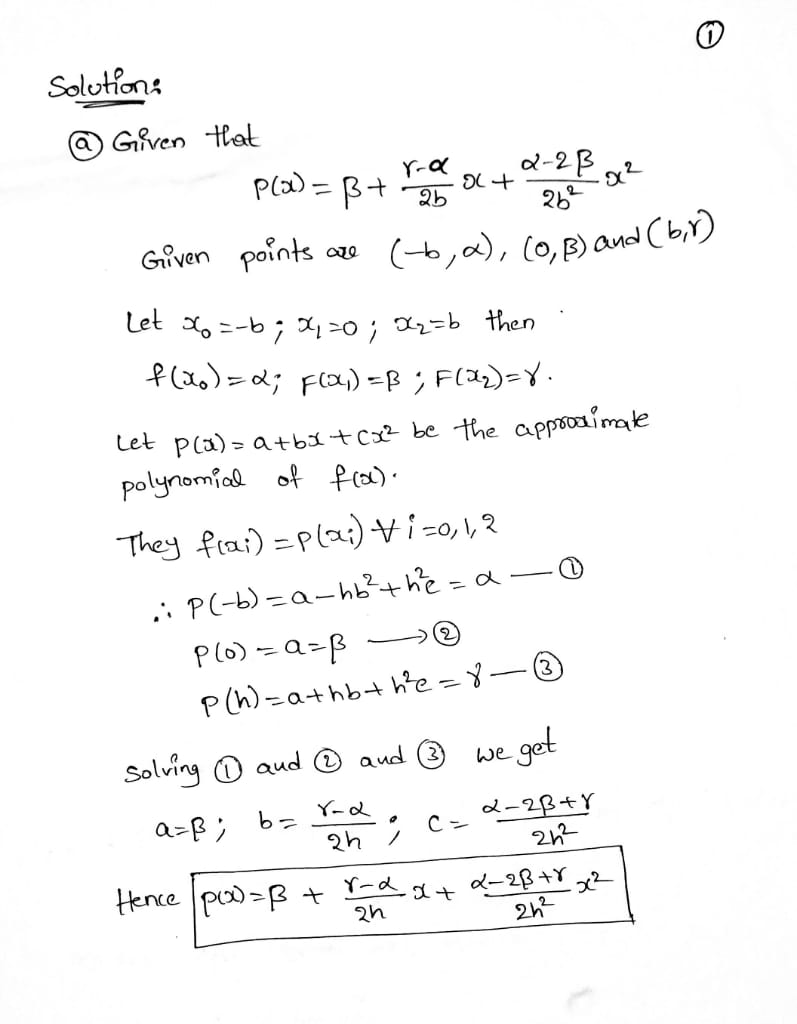 ①
Solution:
ⓐ Given that
P(x) = β + (γ-α)/2b x + (α-2β)/2b² x²
Given points are (-b, α), (0, β) and (b, γ)
Let x₀ = -b ; x₁ = 0 ; x₂ = b then
f(x₀) = α; F(x₁) = β ; F(x₂) = γ.
Let P(x) = a+bx+cx² be the approximate
polynomial of f(x).
They f(xi) = P(xi) ∀ i = 0, 1, 2
∴ P(-b) = a-hb²+h²e = α — ①
P(0) = a = β → ②
P(h) = a+hb+h²e = γ — ③
Solving ① and ② and ③ we get
a=β ; b = (γ-α)/2h ; C = (α-2β+γ)/2h²
Hence p(x) = β + (γ-α)/2h x + (α-2β+γ)/2h² x²